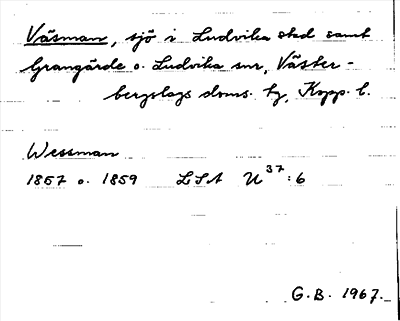 Väsman, sjö i Ludvika stad samt
Grangärde o. Ludvika snr, Väster-
bergslags doms. tg, Kopp. l.
Wessman
1857 o. 1859 LSA U³⁷:6
G.B. 1967.